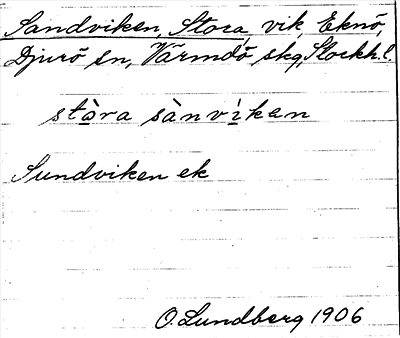 Sandviken, Stora, vik, Eknö,
Djurö sn, Värmdö skg, Stockh. l.
stòra sànvìken
Sundviken ek
O. Lundberg 1906